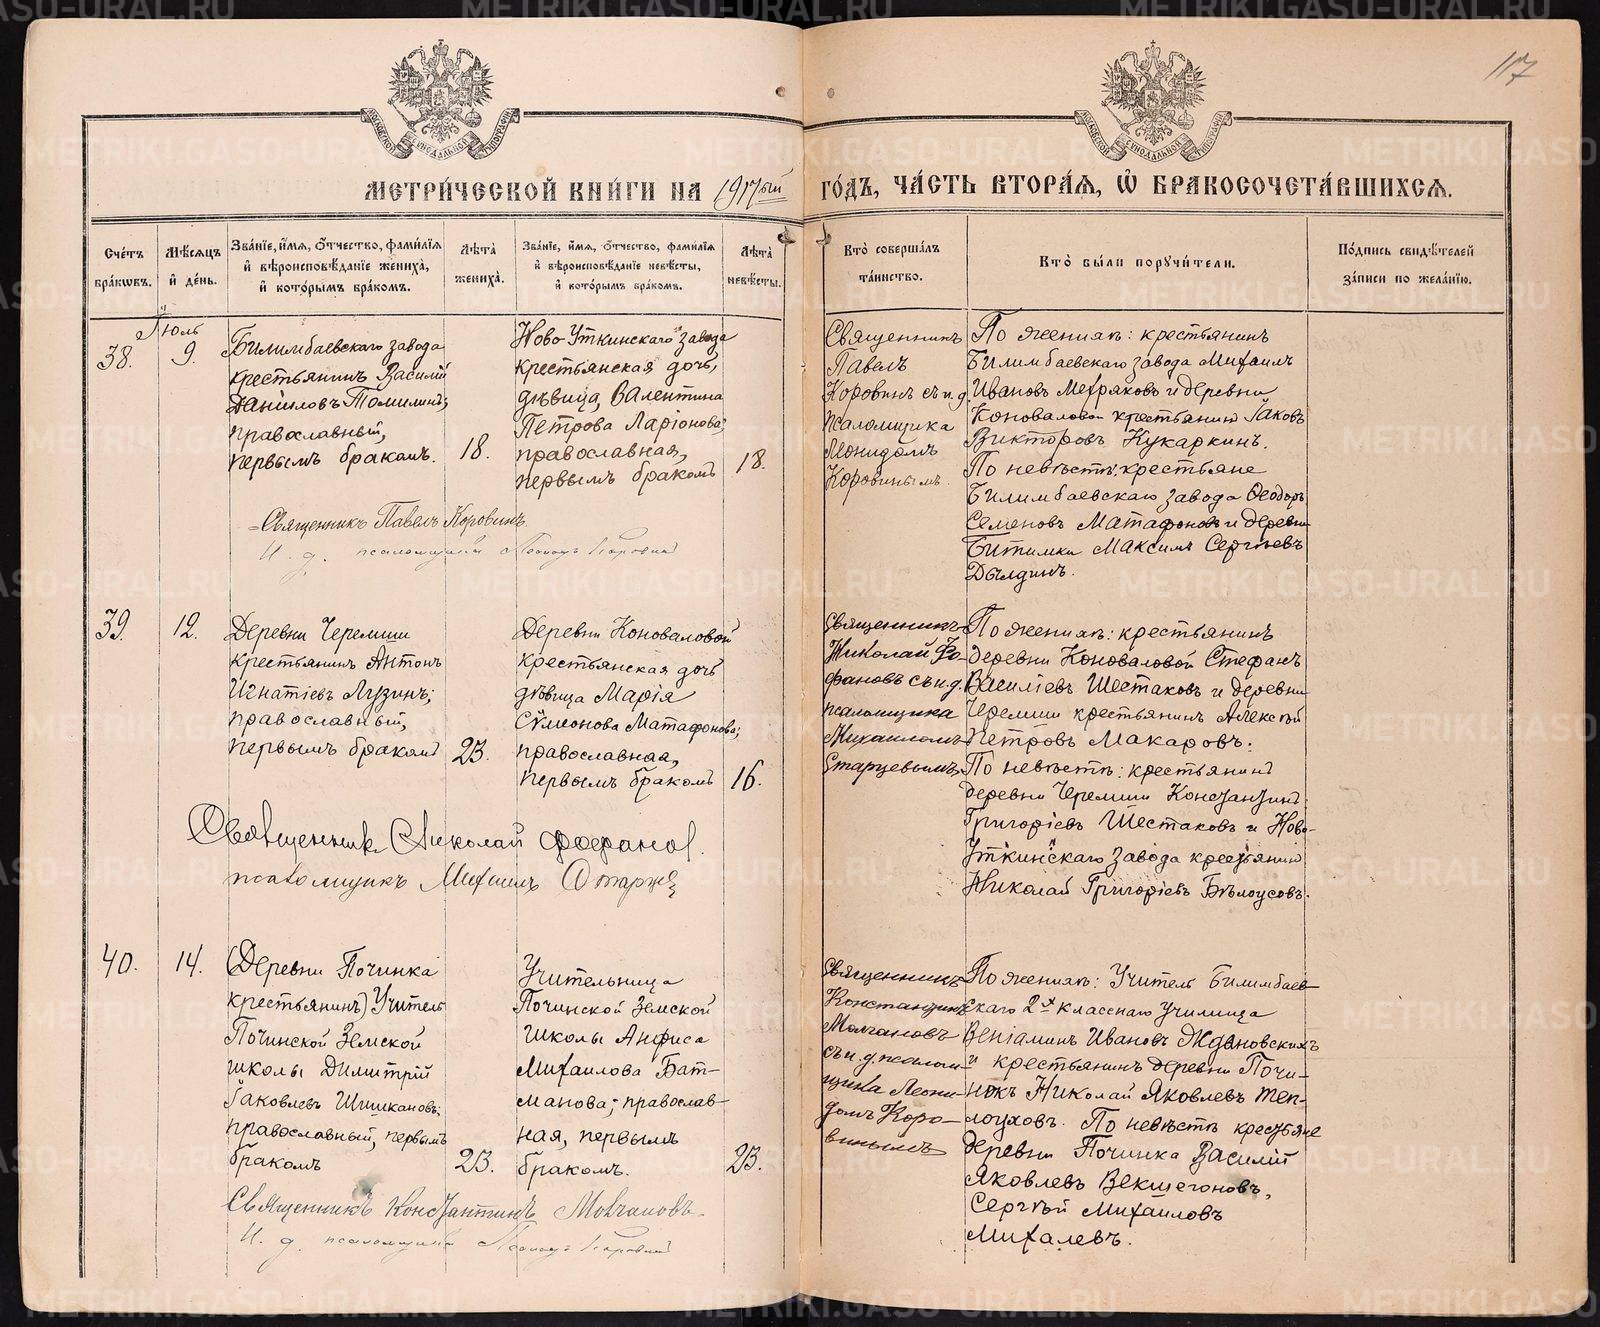 117
МЕТРИ́ЧЕСКОЙ КНИ́ГИ НА 1917ый ГО́ДЪ, ЧА́СТЬ ВТОРА́Я, Ѿ БРАКОСОЧЕТА́ВШИХСЯ.
Сче́тъ бра́кωвъ.
Мѣ́сяцъ и҆ де́нь.
Зва́нїе, и҆́мя, ѻ҆́тчество, фами́лїя и҆ вѣроисповѣ́данїе жениха̀, и҆ кото́рымъ бра́комъ.
Лѣ́та жениха̀.
Зва́нїе, и҆́мя, ѻ҆́тчество, фами́лїя и҆ вѣроисповѣ́данїе невѣ́сты, и҆ кото́рымъ бра́комъ.
Лѣ́та невѣ́сты.
Кто̀ соверша́лъ та́инство.
Кто̀ бы́ли порꙋчи́тели.
По́дпись свидѣ́телей за́писи по жела́нїю.
38.
Іюль
9.
Билимбаевскаго завода
крестьянинъ Василій
Даниловъ Томилинъ;
православный,
первымъ бракомъ.
18.
Ново-Уткинскаго завода
крестьянская дочь,
дѣвица, Валентина
Петрова Ларіонова;
православная,
первымъ бракомъ
18.
Священникъ Павелъ Коровинъ.
И. д. псаломщика Леонидъ Коровинъ
Священникъ
Павелъ
Коровинъ съ и. д.
псаломщика
Леонидомъ
Коровинымъ
По женихѣ: крестьянинъ
Билимбаевскаго завода Михаилъ
Ивановъ Метряковъ и деревни
Коноваловой крестьянинъ Іаковъ
Викторовъ Кукаркинъ.
По невѣстѣ: крестьяне
Билимбаевскаго завода Ѳеодоръ
Семеновъ Матафоновъ и деревни
Битимки Максимъ Сергѣевъ
Дылдинъ.
39.
12.
Деревни Черемши
крестьянинъ Антонъ
Игнатіевъ Лузинъ;
православный,
первымъ бракомъ
23.
Деревни Коноваловой
крестьянская дочь
дѣвица Марія
Сѵмеонова Матафонова;
православная,
первымъ бракомъ
16.
Священникъ Николай Фофановъ.
псаломщикъ Михаилъ Старцевъ
Священникъ
Николай Фо-
фановъ съ и. д.
псаломщика
Михаиломъ
Старцевымъ
По женихѣ: крестьянинъ
деревни Коноваловой Стефанъ
Василіевъ Шестаковъ и деревни
Черемши крестьянинъ Алексѣй
Петровъ Макаровъ.
По невѣстѣ: крестьянинъ
деревни Черемши Константинъ
Григоріевъ Шестаковъ и Ново-
Уткинскаго завода крестьянинъ
Николай Григоріевъ Бѣлоусовъ.
40.
14.
(Деревни Починка
крестьянинъ) Учитель
Починской Земской
школы Димитрій
Іаковлевъ Шишкановъ;
православный, первымъ
бракомъ
23.
Учительница
Починской Земской
школы Анфиса
Михаилова Бат-
манова; православ-
ная, первымъ
бракомъ.
23.
Священникъ Константинъ Молчановъ.
И. д. псаломщика Леонидъ Коровинъ
Священникъ
Константинъ
Молчановъ
съ и. д. псалом-
щика Леони-
домъ Коро-
винымъ
По женихѣ: Учитель Билимбаев-
скаго 2х класснаго училища
Веніаминъ Ивановъ Ждановскихъ
и крестьянинъ деревни Почи-
нокъ Николай Яковлевъ Теп-
лоуховъ. По невѣстѣ крестьяне
деревни Починка Василій
Яковлевъ Векшегоновъ,
Сергѣй Михаиловъ
Михалевъ.
METRIKI.GASO-URAL.RU